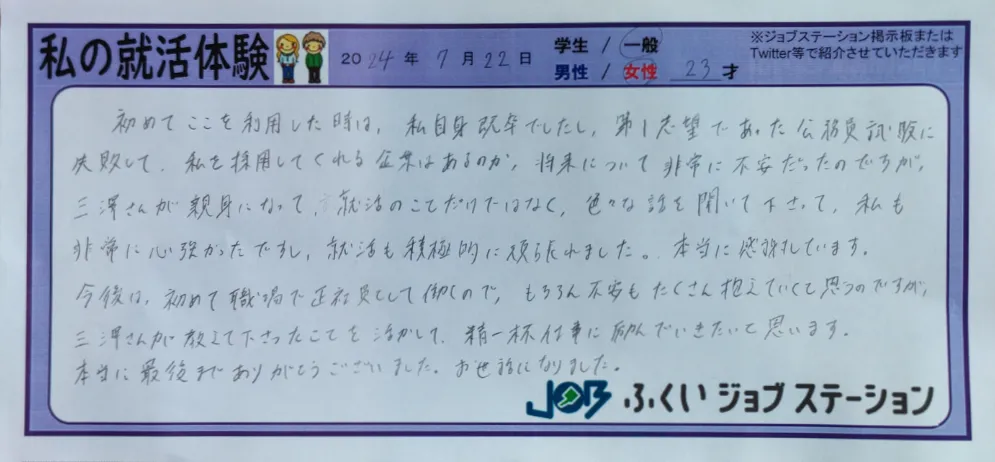 私の就活体験
2024年 7月22日
学生 / 一般
男性 / 女性 23才
※ジョブステーション掲示板または
Twitter等で紹介させていただきます
初めてここを利用した時は、私自身既卒でしたし、第1志望であった公務員試験に
失敗して、私を採用してくれる企業はあるのか、将来について非常に不安だったのですが、
三澤さんが親身になって、就活のことだけではなく、色々な話を聞いて下さって、私も
非常に心強かったですし、就活も積極的に頑張れました。本当に感謝しています。
今後は、初めて職場で正社員として働くので、もちろん不安もたくさん抱えていくと思うのですが、
三澤さんが教えて下さったことを活かして、精一杯仕事に励んでいきたいと思います。
本当に最後までありがとうございました。お世話になりました。
JOB ふくいジョブステーション